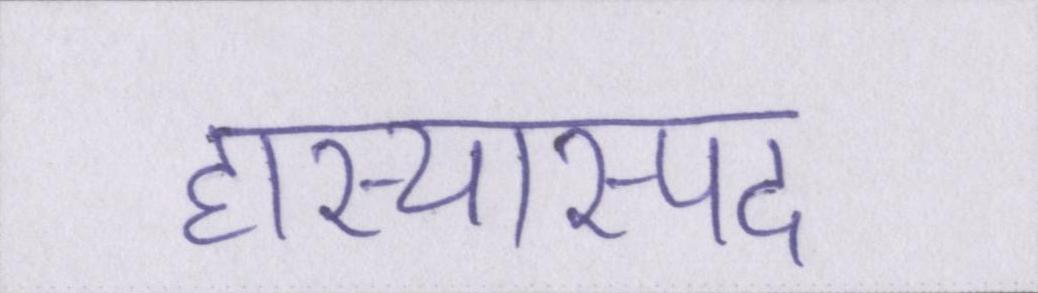 हास्यास्पद